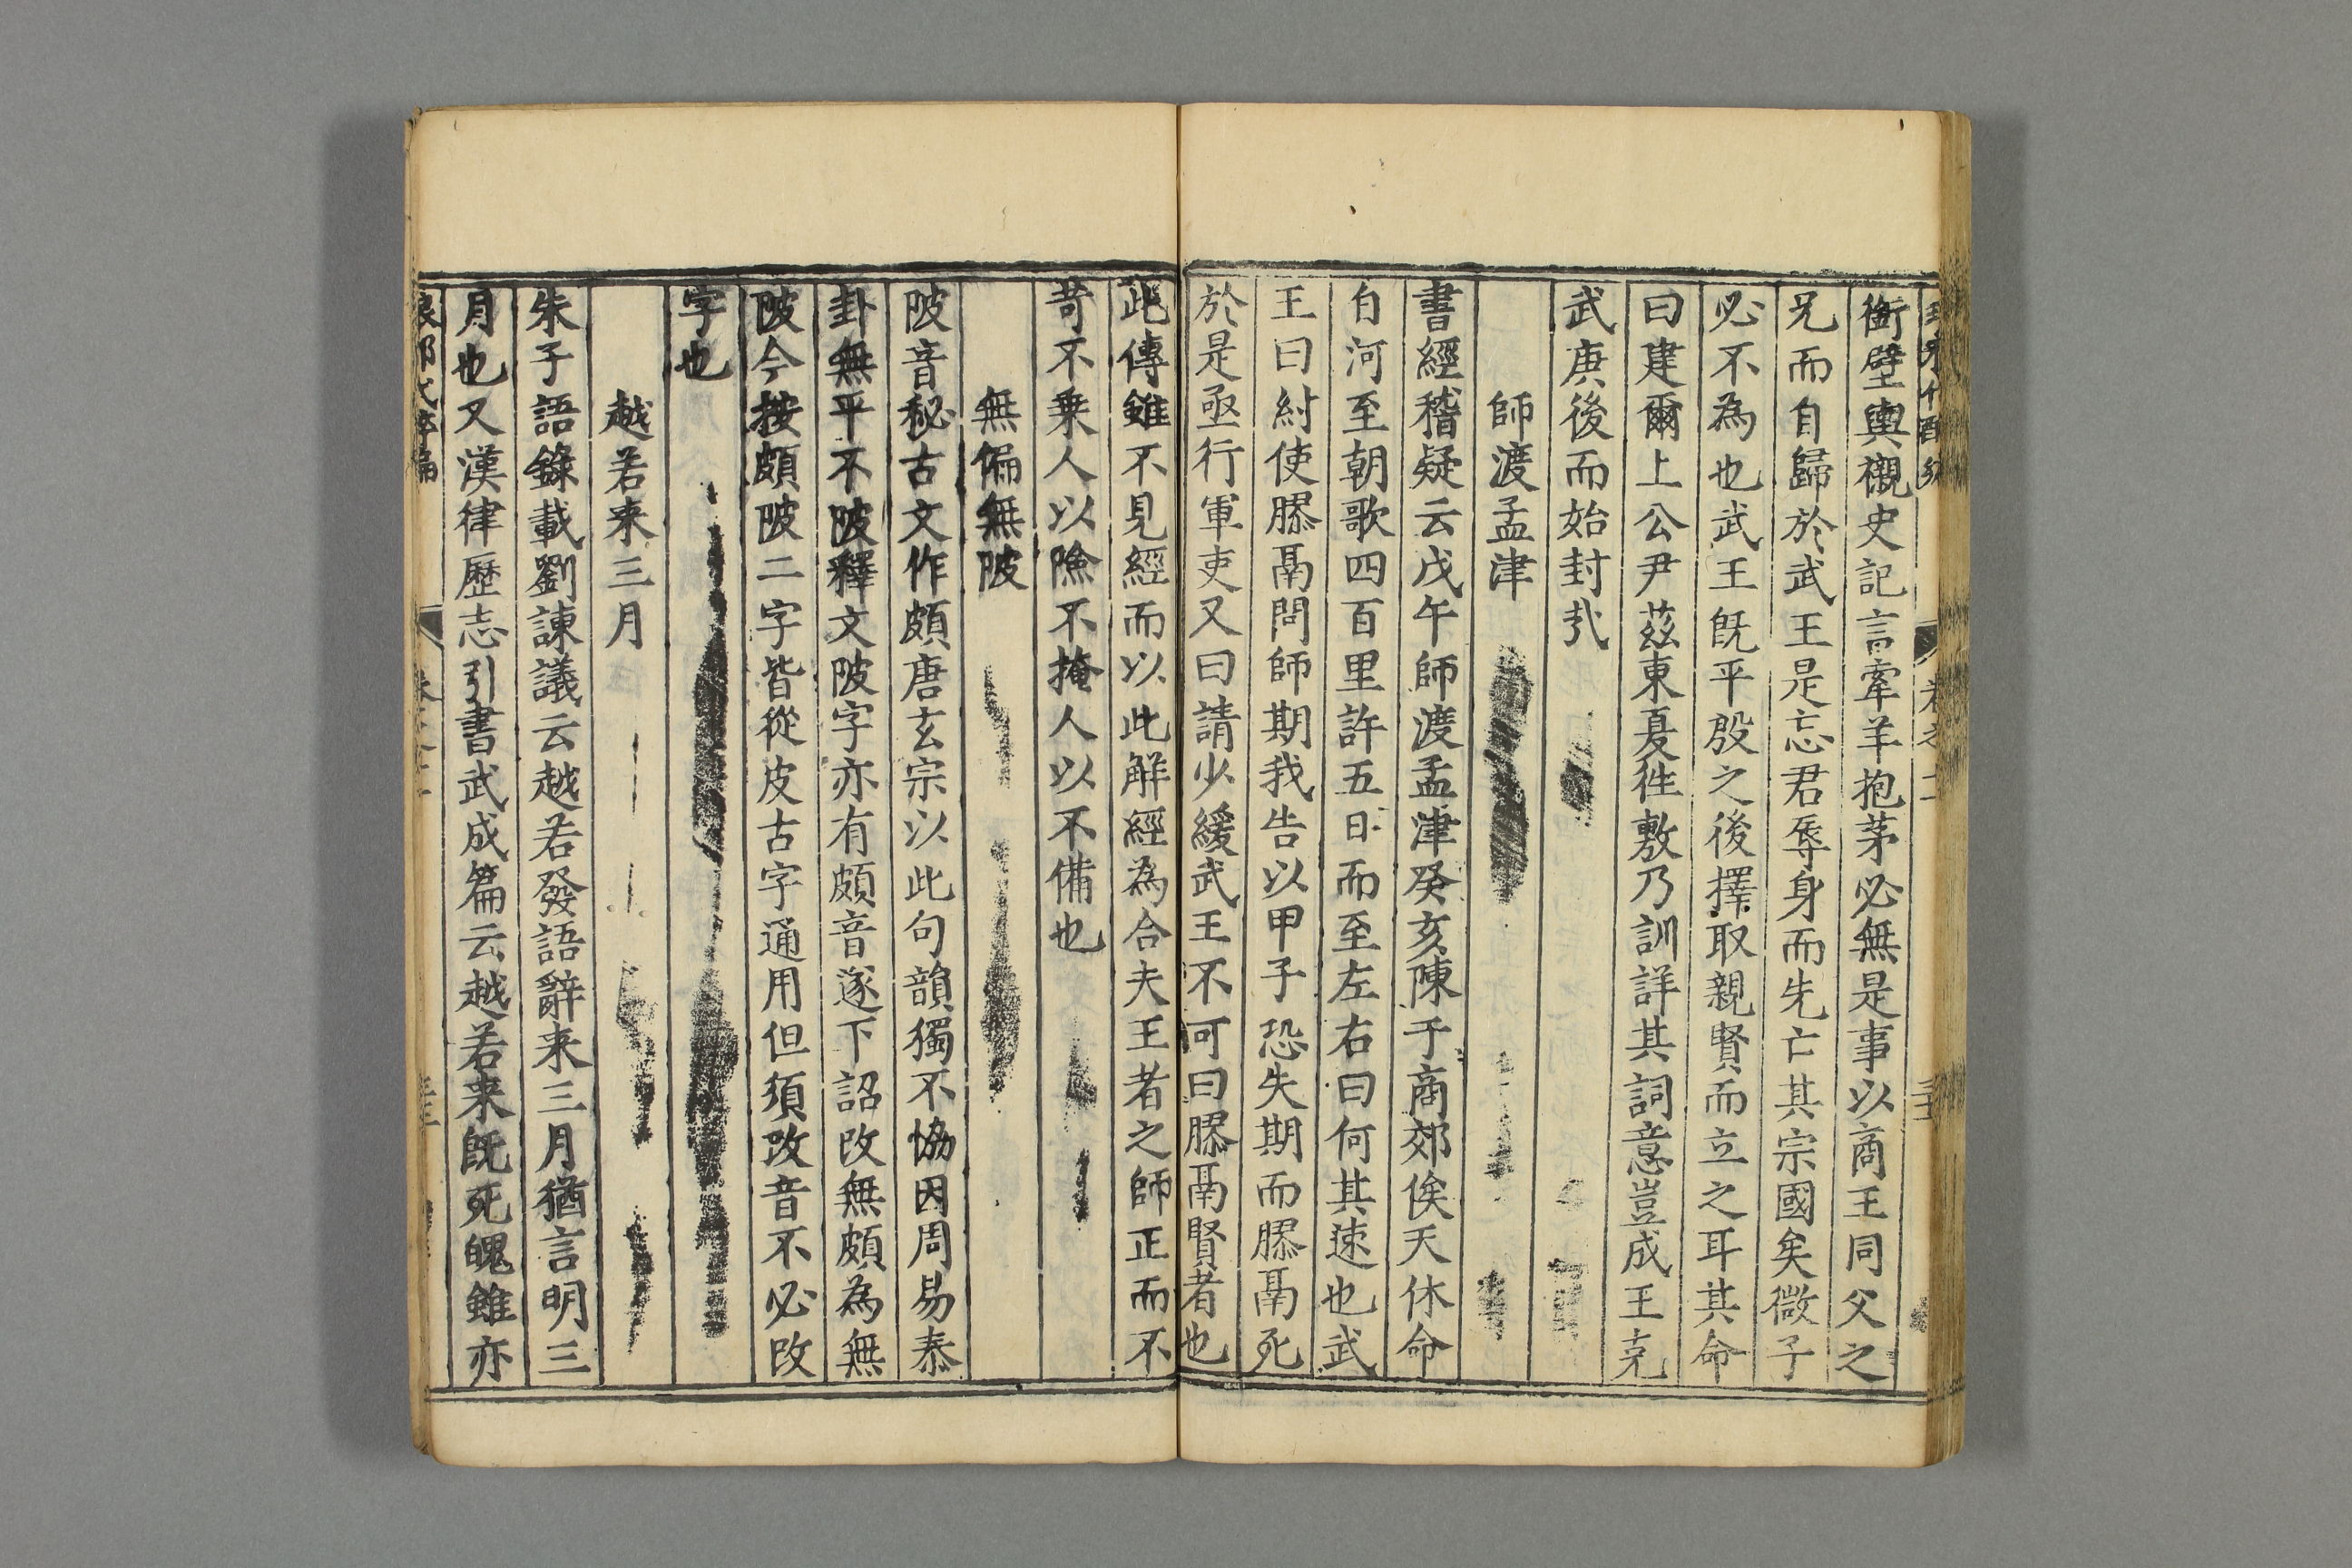 銜璧輿櫬史記言牽羊抱茅必無是事以商王同父之
兄而自歸於武王是忘君辱身而先亡其宗國矣微子
必不為也武王既平殷之後擇取親賢而立之耳其命
曰建爾上公尹茲東夏徃敷乃訓詳其詞意豈成王克
武庚後而始封㢤
師渡孟津
書經稽疑云戊午師渡孟津癸亥陳于商郊俟天休命
自河至朝歌四百里許五日而至左右曰何其速也武
王曰紂使膠鬲問師期我告以甲子恐失期而膠鬲死
於是亟行軍吏又曰請少緩武王不可曰膠鬲賢者也
此傳雖不見經而以此解經為合夫王者之師正而不
苛不乗人以險不掩人以不備也
無偏無陂
陂音秘古文作頗唐玄宗以此句韻獨不恊因周易泰
卦無平不陂釋文陂字亦有頗音遂下詔改無頗為無
陂今按頗陂二字皆從皮古字通用但須改音不必改
字也
越若来三月
朱子語錄載劉諫議云越若發語辭来三月猶言明三
月也又漢律歷志引書武成篇云越若来既死魄雖亦